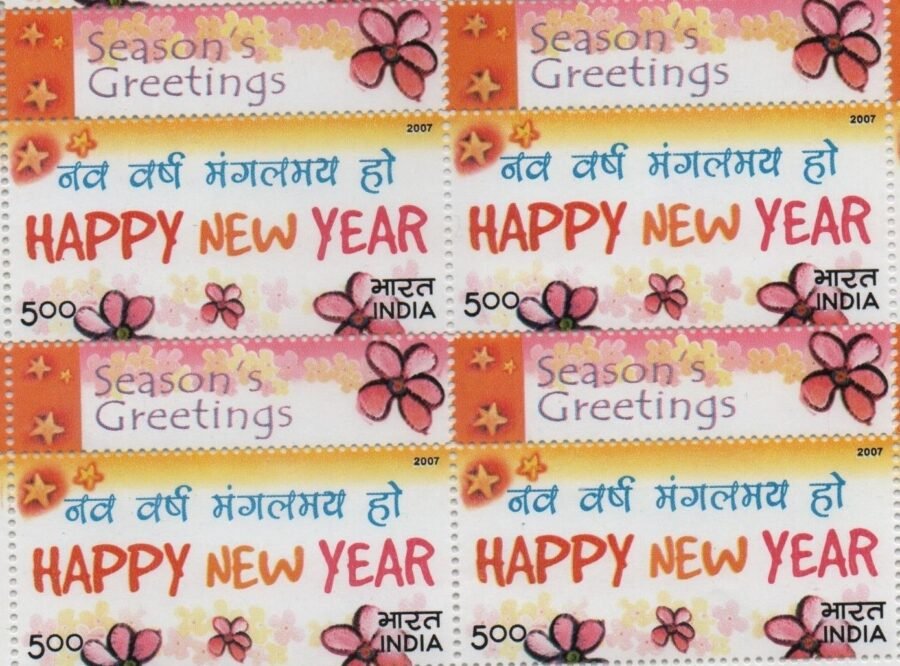 Season's Season's
Greetings Greetings
2007 2007
नव वर्ष मंगलमय हो नव वर्ष मंगलमय हो
HAPPY NEW YEAR HAPPY NEW YEAR
500 भारत 500 भारत
INDIA INDIA
Season's Season's
Greetings Greetings
2007 2007
नव वर्ष मंगलमय हो नव वर्ष मंगलमय हो
HAPPY NEW YEAR HAPPY NEW YEAR
500 भारत 500 भारत
INDIA INDIA